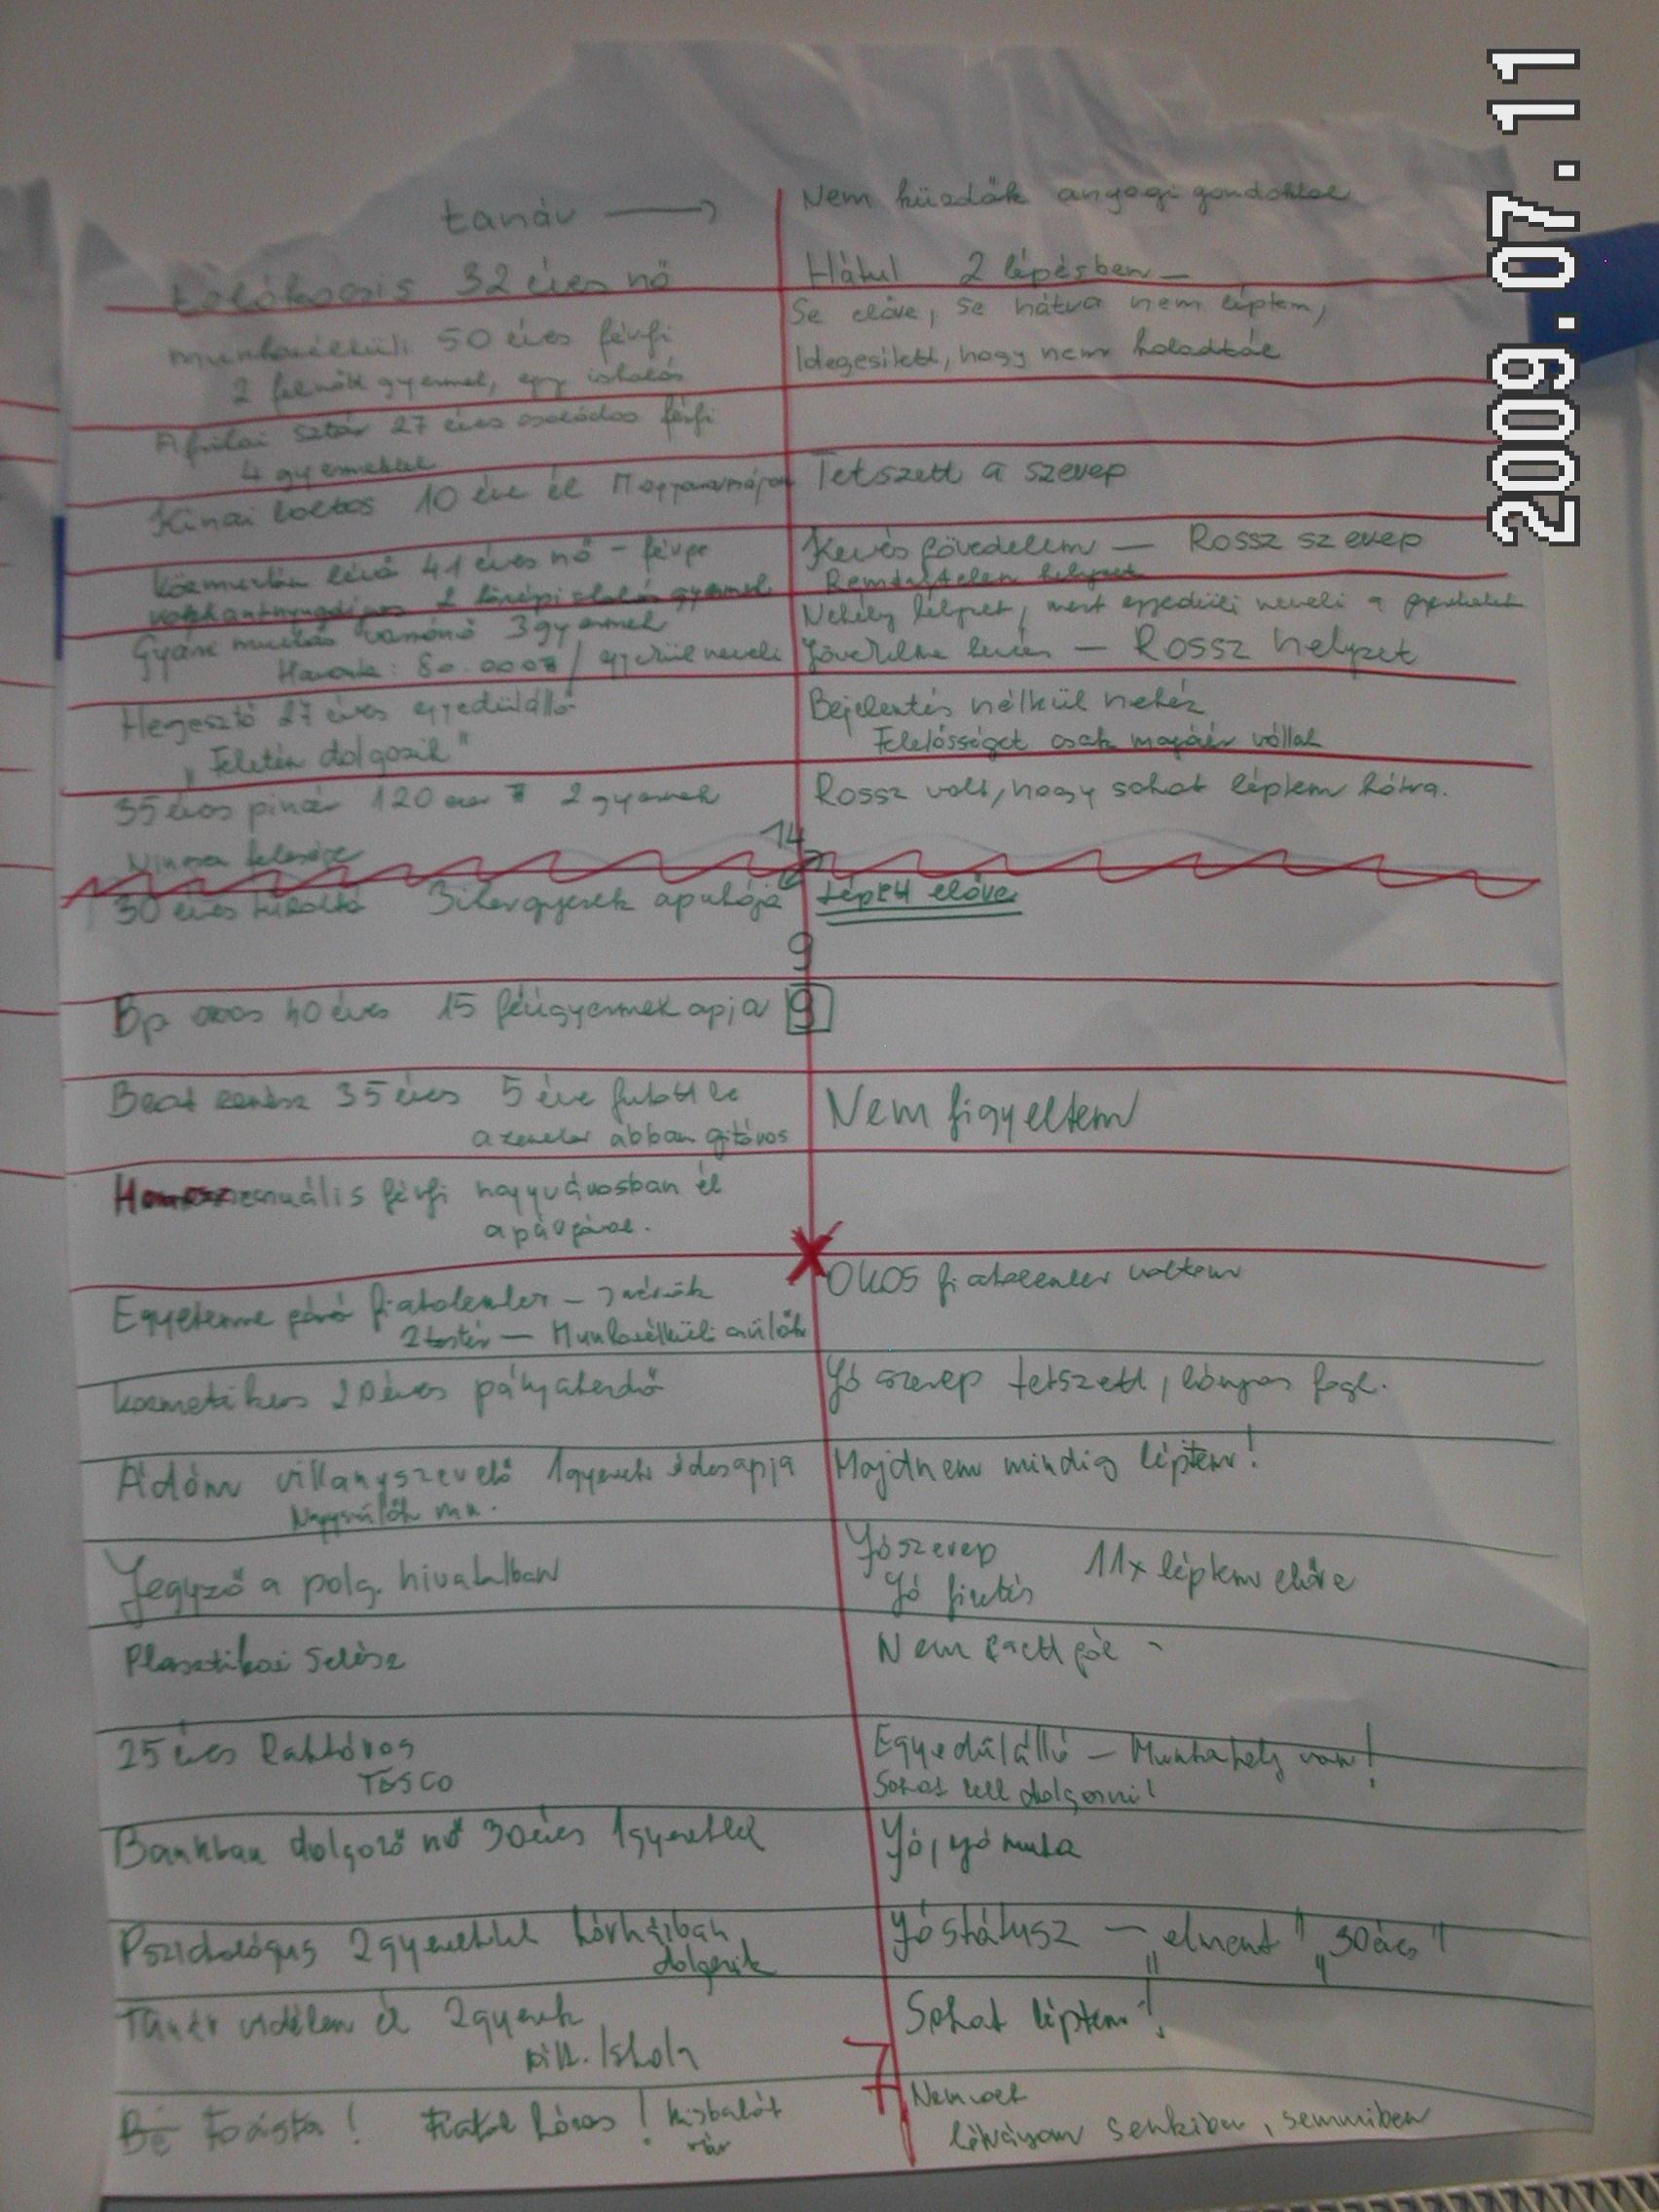 2009.07.11
tanár →
Nem küzdök anyagi gondokkal
tolókocsis 32 éves nő
Hátul 2 lépésben —
munkanélküli 50 éves férfi
2 felnőtt gyermek, egy iskolás
Se előre, se hátra nem léptem,
Idegesített, hogy nem haladtak
Afrikai sztár 27 éves családos férfi
4 gyermekkel
Kinai boltos 10 éve él Magyarországon
Tetszett a szerep
41 éves nő – férje
rokkantnyugdíjas 2 középiskolás gyermek
Kevés jövedelem — Rossz szerep
Reménytelen helyzet
Gyári munkás varrónő 3 gyermek
Havonta: 80.000 / egyedül neveli
Nehéz helyzet, mert egyedüli neveli a gyerekeket
Jövedelme kevés — Rossz helyzet
Hegesztő 27 éves egyedülálló
„Feketén dolgozik"
Bejelentés nélkül nehéz
Felelősséget csak magáér vállal
35 éves pincér 120 ezer 2 gyermek
Nincsen felesége
Rossz volt, hogy sokat léptem hátra.
14
30 éves Bikergyerek apukája
lépett előre
9
Bp 40 éves 15 félügyermek apja
9
Beat zenész 35 éves 5 éve futott be
a zenekar abban gitáros
Nem figyeltem
Homoszexuális férfi nagyvárosban él
a párjával.
Egyetemre járó fiatalember –
2 testvér — Munkanélküli szülők
Okos fiatalember voltam
kozmetikus 20 éves pályakezdő
Jó szerep tetszett, lányos fogl.
Ádám villanyszerelő 1 gyerek édesapja
Nagyszülők
Majdnem mindig léptem!
Jegyző a polg. hivatalban
Jó szerep
Jó fizetés
11x léptem előre
Plasztikai Sebész
Nem
25 éves Raktáros
TESCO
Egyedülálló – Munkahely van!
Sokat kell dolgozni!
Bankban dolgozó nő 30 éves 1 gyerekkel
Jó, jó munka
Pszichológus 2 gyerekkel kórházban
dolgozik
Jó státusz — „elment" „30ács"
Tanár vidéken él 2 gyerek
Iskola
Sokat léptem!
7
Fiatal
Nem volt
senkiben, semmiben